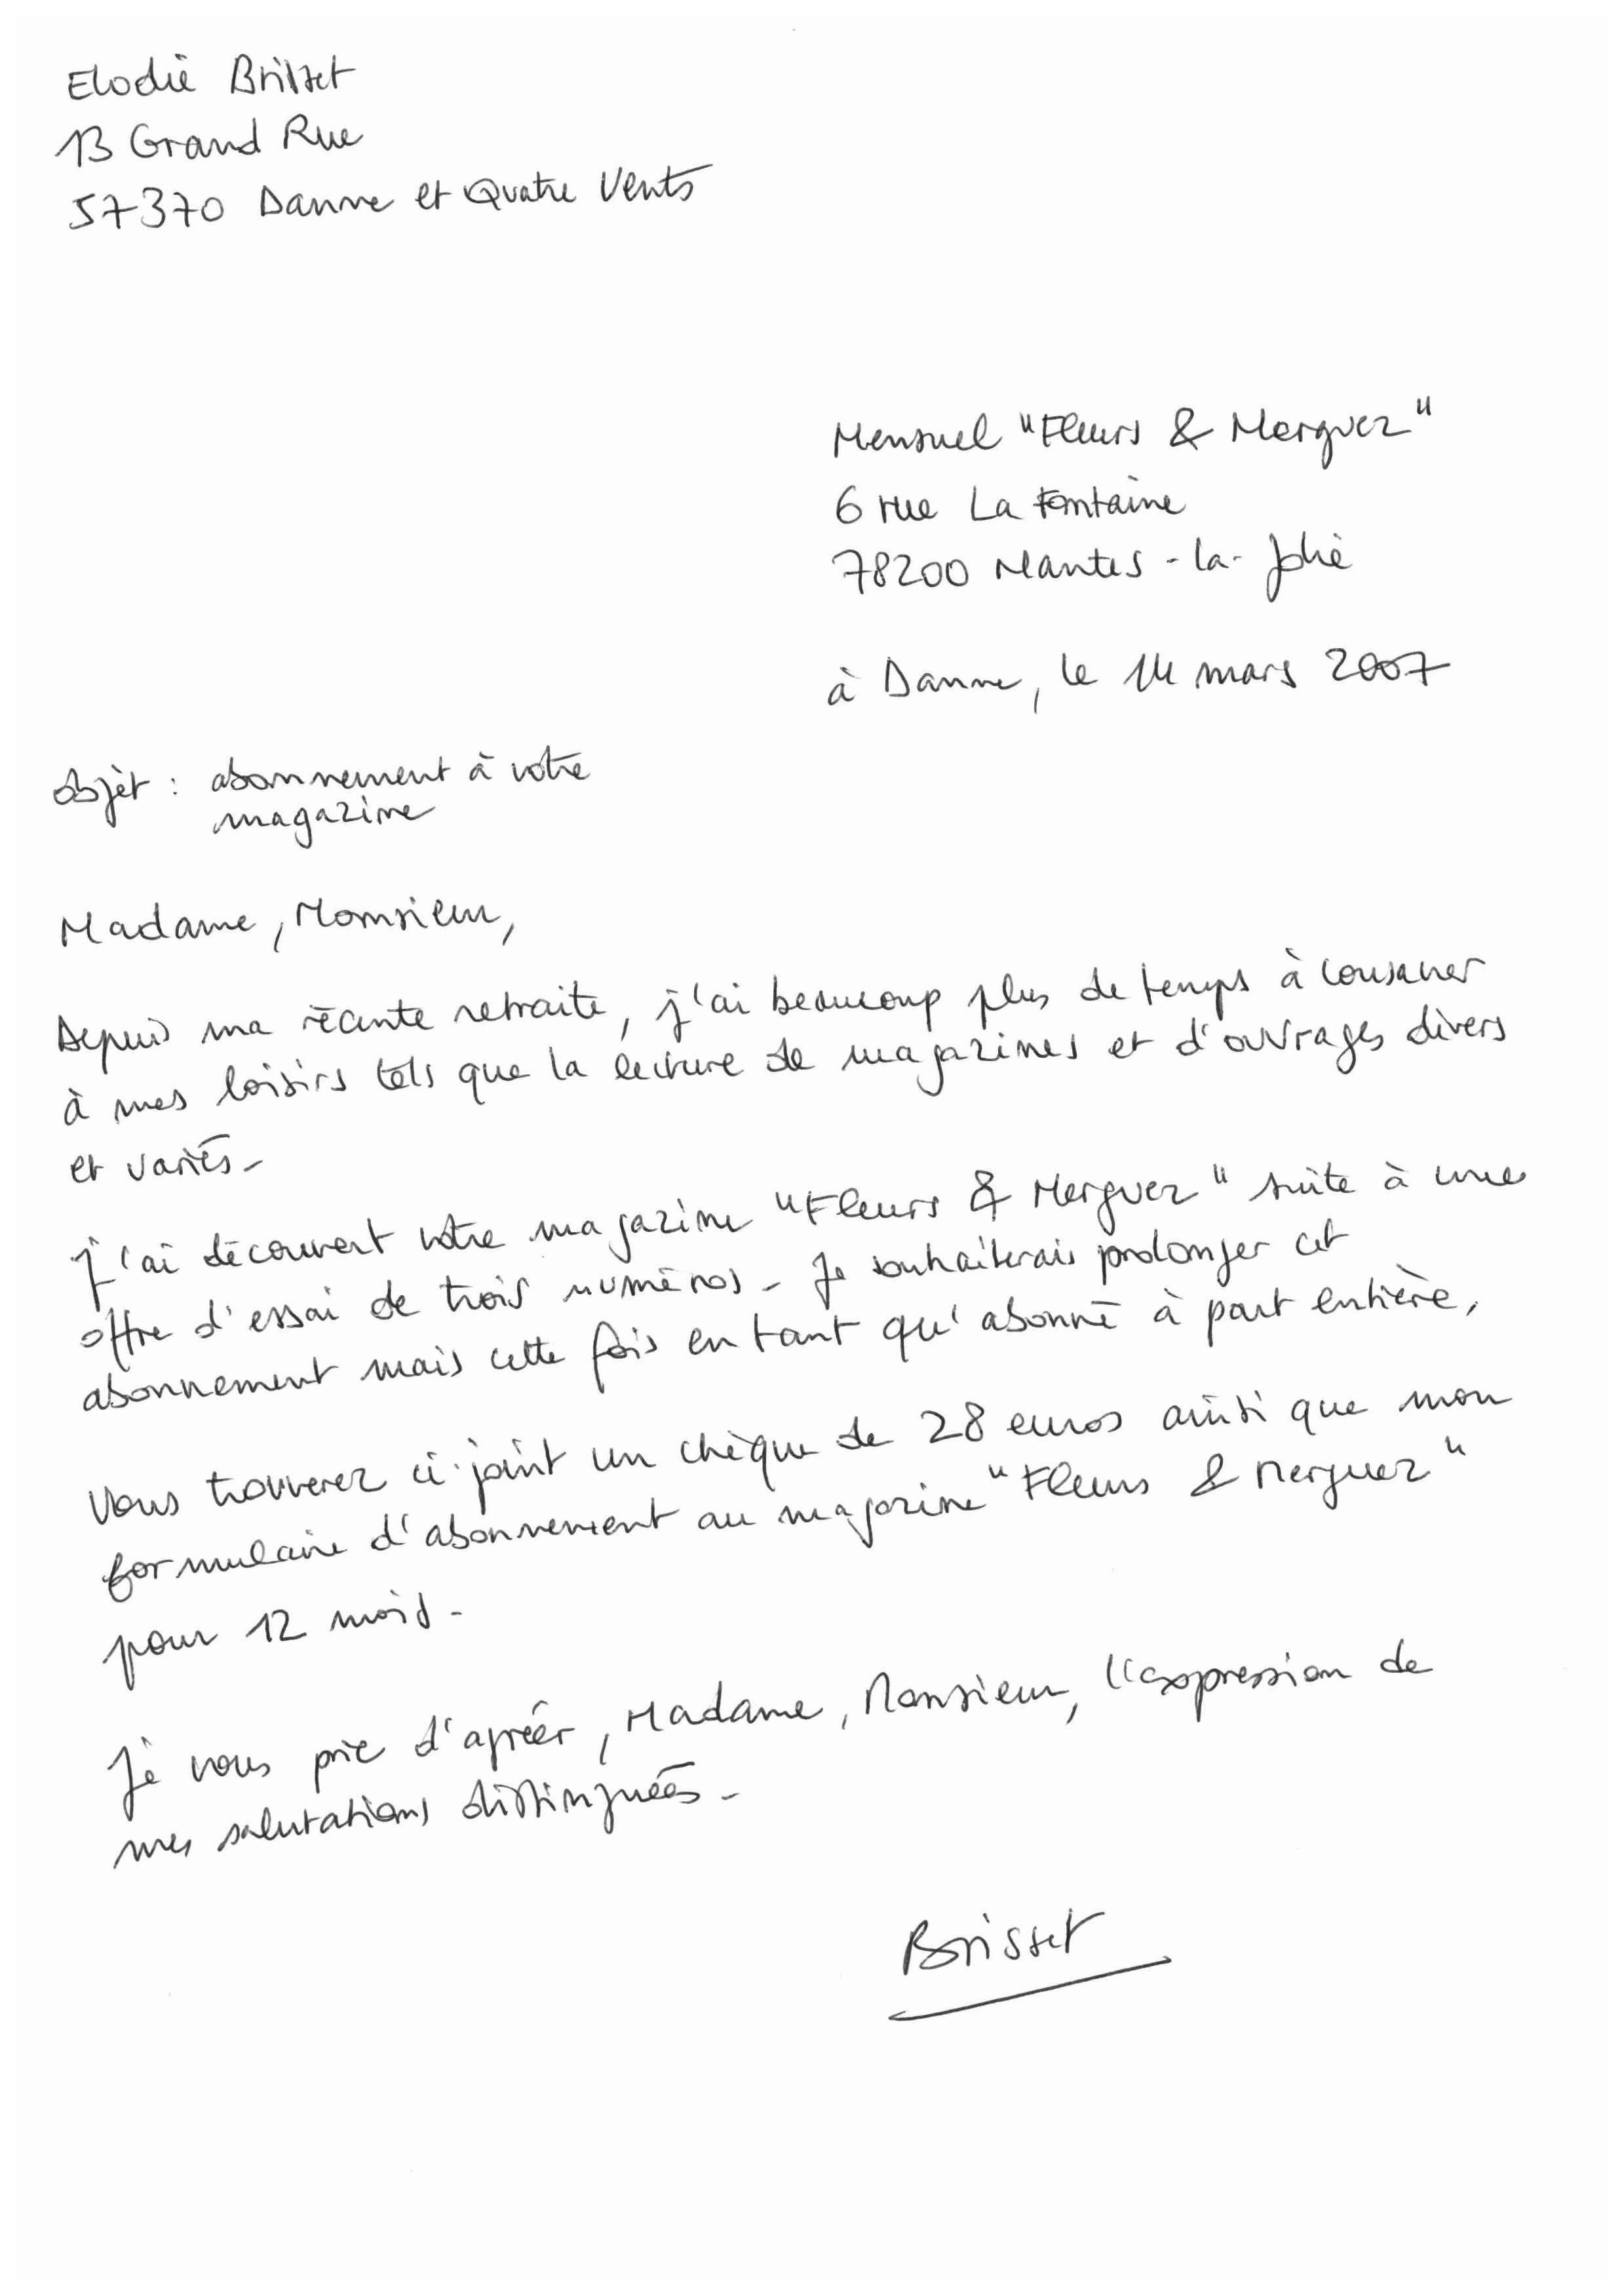 Elodie Brisset
13 Grand Rue
57370 Danne et Quatre Vents
Mensuel "Fleurs & Merguez"
6 rue La Fontaine
78200 Mantes-la-Jolie
à Danne, le 14 mars 2007
Objet : abonnement à votre
magazine
Madame, Monsieur,
Depuis ma récente retraite, j'ai beaucoup plus de temps à consacrer
à mes loisirs tels que la lecture de magazines et d'ouvrages divers
et variés.
J'ai découvert votre magazine "Fleurs & Merguez" suite à une
offre d'essai de trois numéros. Je souhaiterais prolonger cet
abonnement mais cette fois en tant qu'abonné à part entière,
Vous trouverez ci-joint un chèque de 28 euros ainsi que mon
formulaire d'abonnement au magazine "Fleurs & Merguez"
pour 12 mois.
Je vous prie d'agréer, Madame, Monsieur, l'expression de
mes salutations distinguées.
Brisset